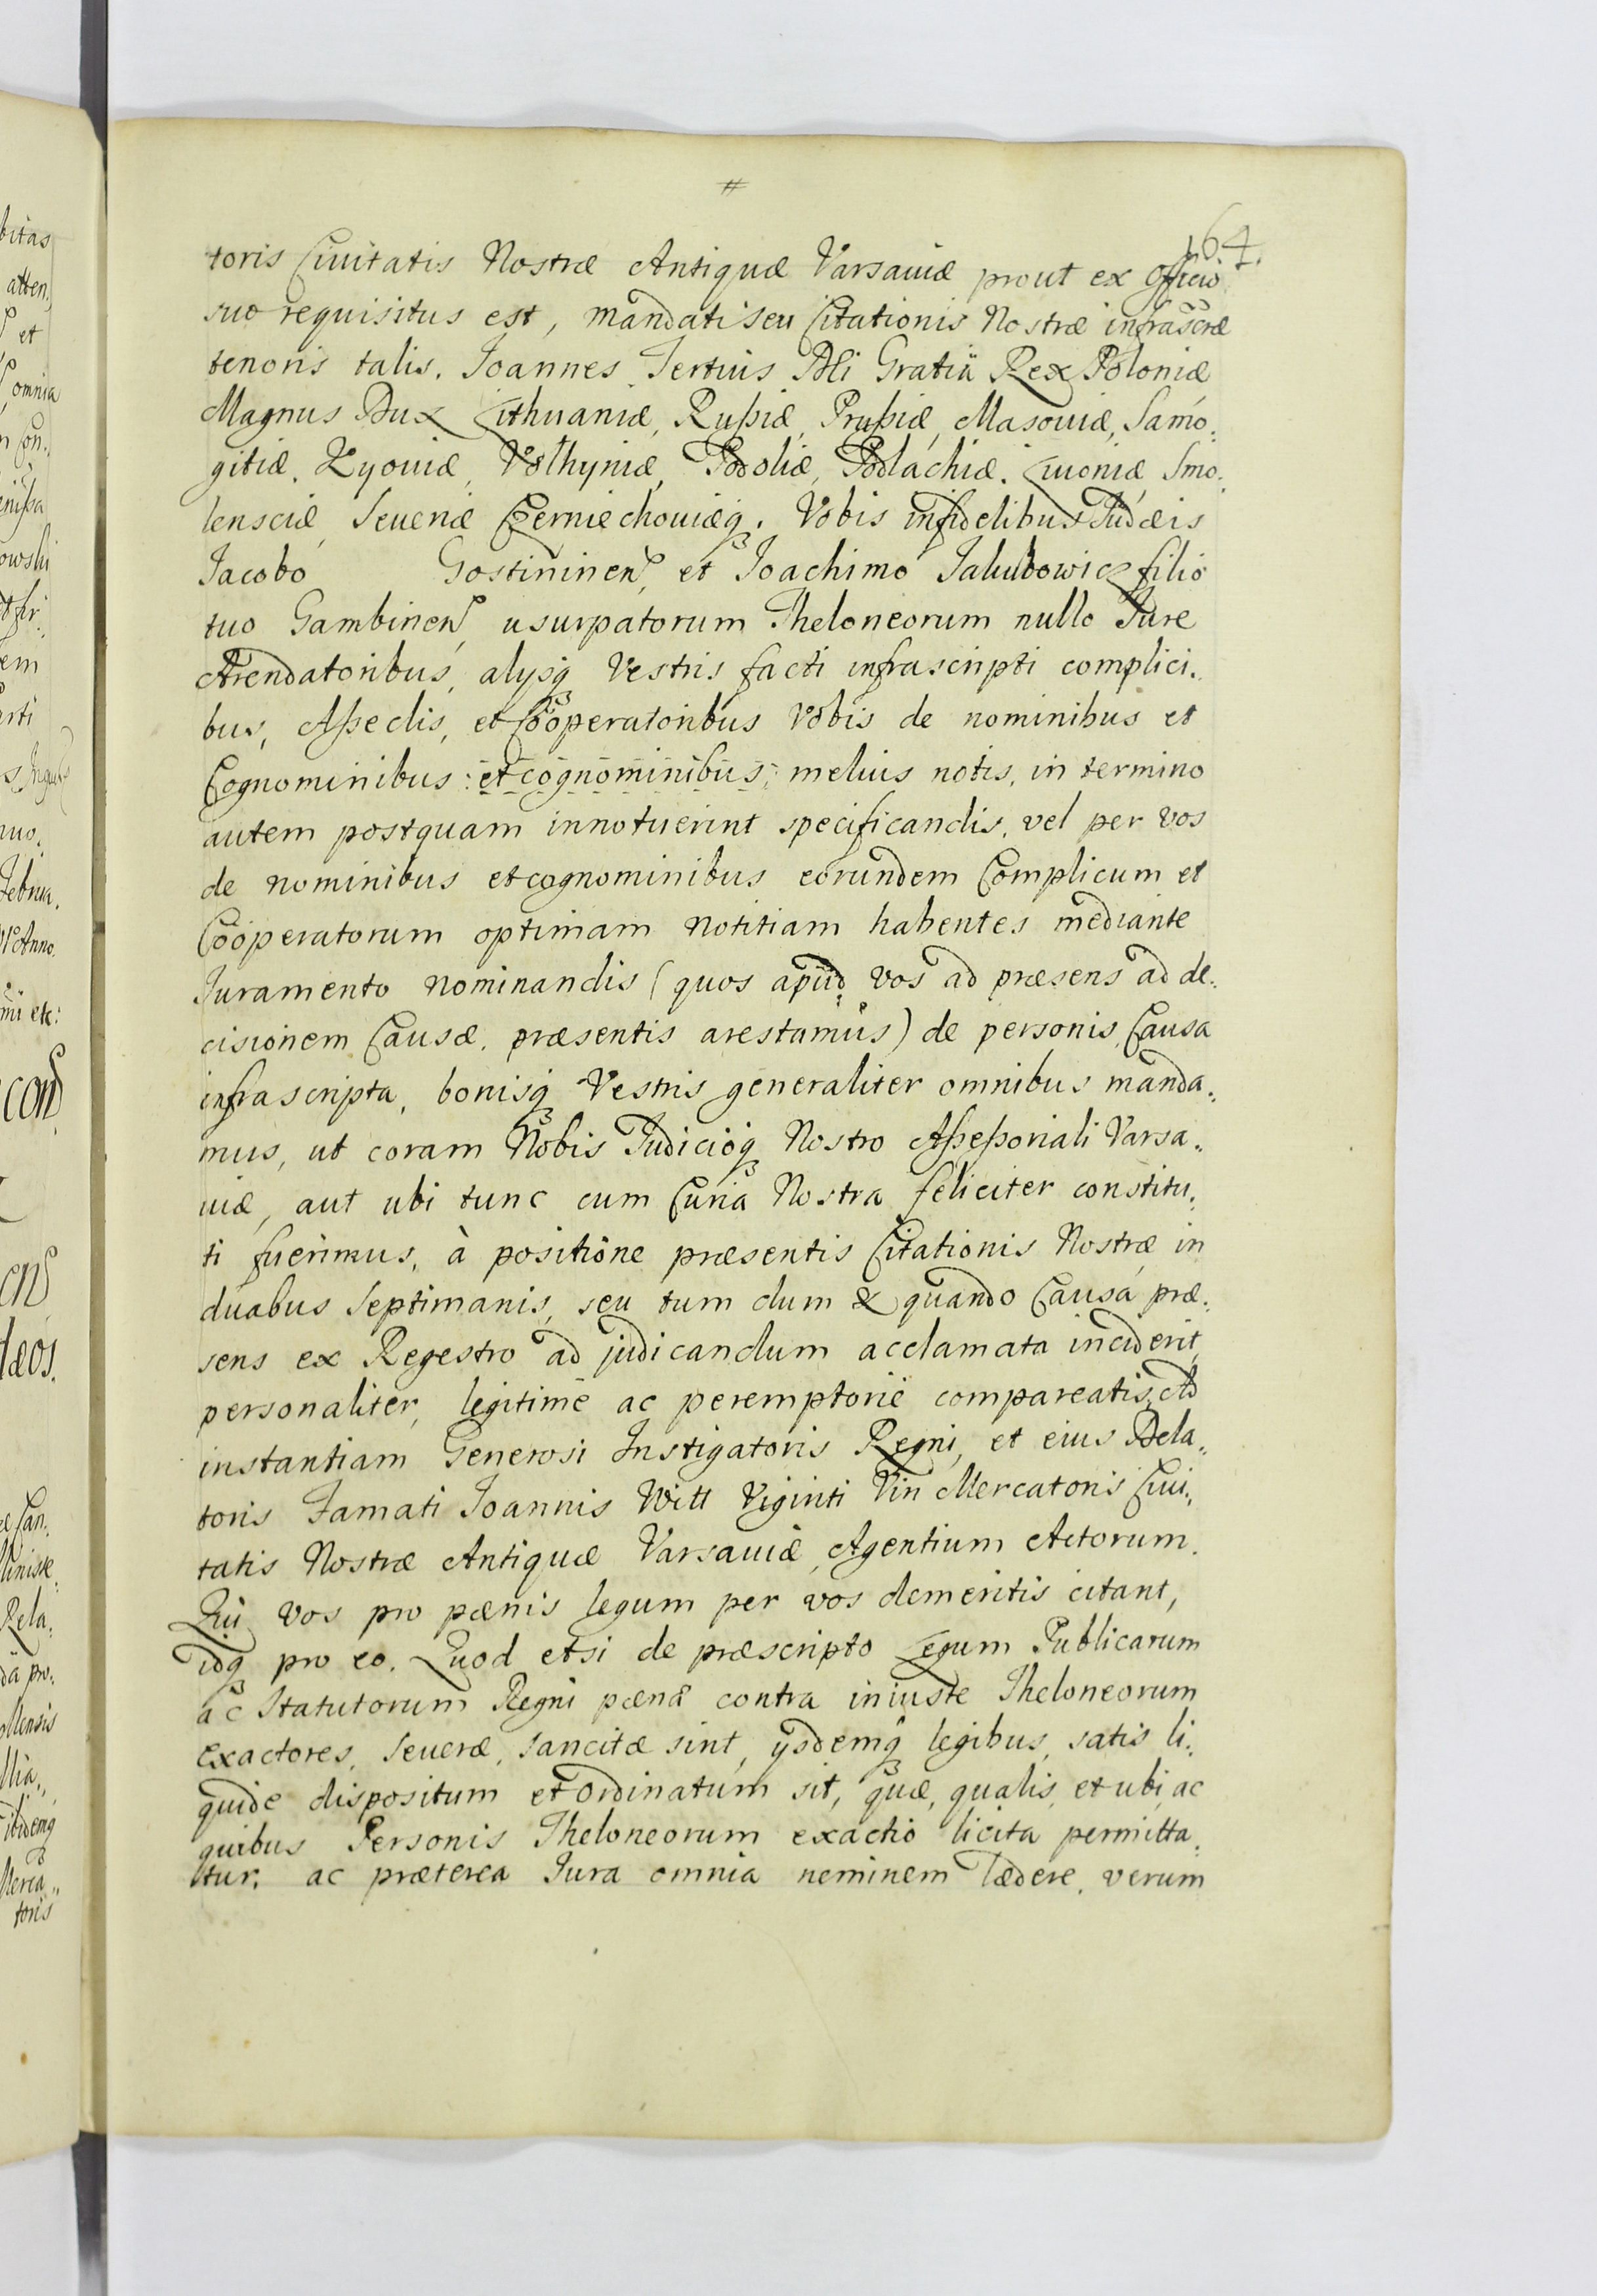 #
164.
toris Ciuitatis Nostræ Antiquæ Varsauiæ prout ex Officio
suo requisitus est, mandati seu Citationis Nostræ infrascræ
tenoris talis. Joannes Tertius Dei Gratiâ Rex Poloniæ
Magnus Dux Lithuaniæ, Rußiæ, Prußiæ, Masouiæ, Samo:
gitiæ, Kyouiæ, Volhyniæ, Podoliæ, Podlachiæ, Liuoniæ Smo:
lensciæ, Seueriæ Czerniechouiæq. Vobis infidelibus Judæis
Jacobo Gostininen, et Joachimo Jakubowicz filio
tuo Gambinen, usurpatorum Theloneorum nullo Jure
Arendatoribus, alysq Vestris facti infrascripti complici.
bus, Aßeclis, et Cooperatoribus Vobis de nominibus et
Cognominibus : et cognominibus : melius notis, in termino
autem postquam innotuerint specificandis, vel per vos
de nominibus et cognominibus eorundem Complicum et
Cooperatorum optimam notitiam habentes mediante
Juramento nominandis (quos apud vos ad præsens ad de:
cisionem Causæ præsentis arestamus) de personis, Causa
infrascripta, bonisq Vestris generaliter omnibus manda:
mus, ut coram Nobis Judicioq Nostro Aßeßoriali Varsa:
uiæ, aut ubi tunc cum Curia Nostra feliciter constitu:
ti fuerimus, à positione præsentis Citationis Nostræ in
duabus Septimanis, seu tum dum & quando Causa præ:
sens ex Regestro ad judicandum acclamata inciderit,
personaliter, legitimè ac peremptoriè compareatis, Ad
instantiam Generosi Instigatoris Regni, et eius Dela:
toris Famati Joannis Witt Viginti Viri Mercatoris Ciui:
tatis Nostræ Antiquæ Varsauiæ, Agentium Actorum.
Qui vos pro pænis legum per vos demeritis citant,
idq pro eo. Quod etsi de præscripto Legum Publicarum
ac Statutorum Regni pænæ contra iniuste Theloneorum
exactores, Seueræ, sancitæ sint, ysdemq legibus, satis li:
quide dispositum et ordinatum sit, quæ, qualis, et ubi, ac
quibus Personis Theloneorum exactio licita permitta:
tur. ac præterea Jura omnia neminem lædere, verum